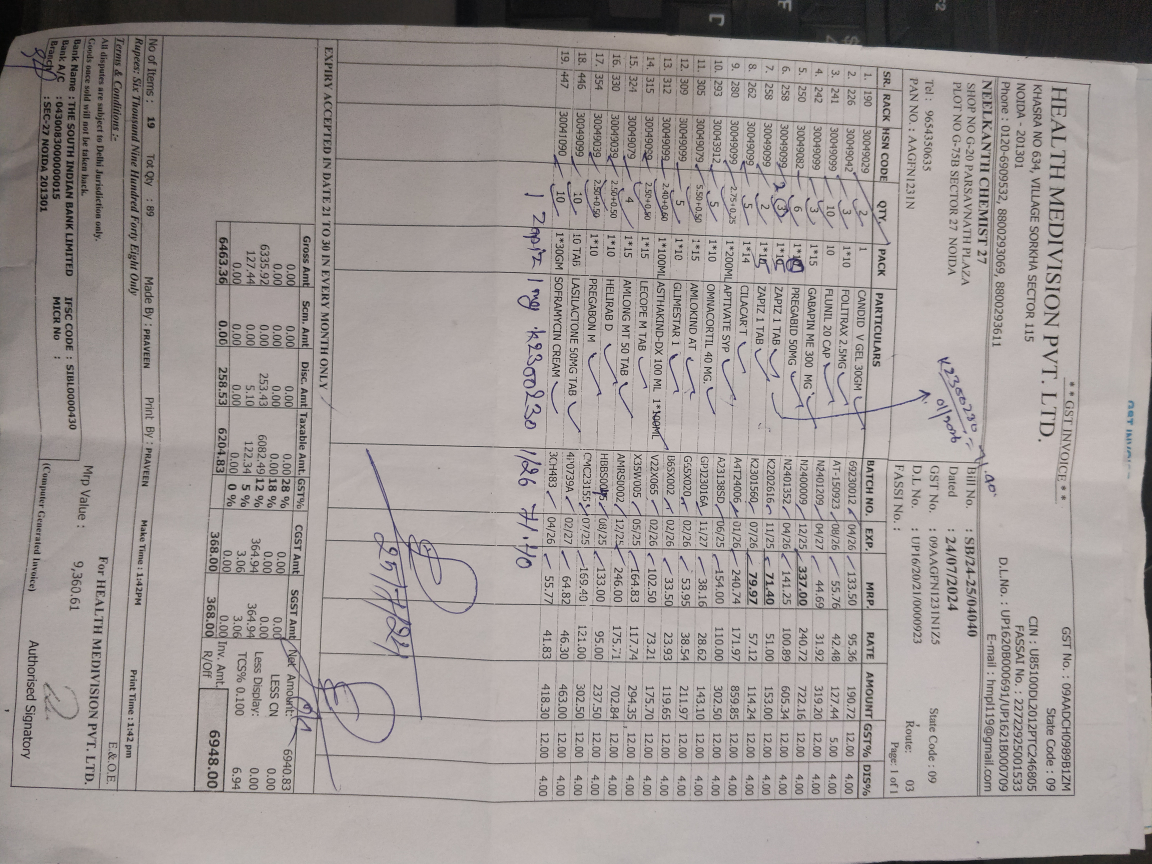 GST INVOICE
** GST INVOICE **
HEALTH MEDIVISION PVT. LTD.
KHASRA NO 634, VILLAGE SORKHA SECTOR 115
NOIDA - 201301
Phone : 0120-6909532, 8800293069, 8800293611
GST No. : 09AADCH0989B1ZM
State Code : 09
CIN : U85100DL2012PTC246805
FASSAI No. : 22722925001533
D.L.No. : UP1620B000691/UP1621B000709
E-mail : hmpl119@gmail.com
NEELKANTH CHEMIST 27
SHOP NO G-20 PARSAVNATH PLAZA
PLOT NO G-75B SECTOR 27 NOIDA
Tel : 9654350635
PAN NO. : AAGFN1231N
K2300230
01/2026
71.40
Bill No. : SB/24-25/04040
Dated : 24/07/2024
GST No. : 09AAGFN1231N1Z5 State Code : 09
D.L No. : UP16/20/21/0000923 Route: 03
FASSI No. : Page: 1 of 1
SR. RACK HSN CODE QTY. PACK PARTICULARS BATCH NO. EXP. MRP. RATE AMOUNT GST% DIS%
1. 190 30049029 2 1 CANDID V GEL 30GM 69230012 04/26 133.50 95.36 190.72 12.00 4.00
2. 226 30049042 3 1*10 FOLITRAX 2.5MG AT-150923 08/26 55.76 42.48 127.44 5.00 4.00
3. 241 30049099 10 10 FLUNIL 20 CAP N2401209 04/27 44.69 31.92 319.20 12.00 4.00
4. 242 30049099 3 1*15 GABAPIN ME 300 MG N2400009 12/25 337.00 240.72 722.16 12.00 4.00
5. 250 30049082 6 PREGABID 50MG N2401352 04/26 141.25 100.89 605.34 12.00 4.00
6. 258 30049099 3 ZAPIZ 1 TAB K2202016 11/25 71.40 51.00 153.00 12.00 4.00
7. 258 30049099 2 1*15 ZAPIZ 1 TAB K2301560 07/26 79.97 57.12 114.24 12.00 4.00
8. 262 30049099 5 1*14 CILACAR T A4T24006 01/26 240.74 171.97 859.85 12.00 4.00
9. 280 30049099 2.75+0.25 1*200ML APTIVATE SYP A23138SD 06/25 154.00 110.00 302.50 12.00 4.00
10. 293 30043912 5 1*10 OMNACORTIL 40 MG. GPJ23016A 11/27 38.16 28.62 143.10 12.00 4.00
11. 305 30049079 5.50+0.50 1*15 AMLOKIND AT 53.95 38.54 211.97 12.00 4.00
12. 309 30049099 5 1*10 GLIMESTAR 1 02/26 33.50 23.93 119.65 12.00 4.00
13. 312 30049099 2.40+0.60 1*100ML ASTHAKIND-DX 100 ML 1*100ML V22X065 02/26 102.50 73.21 175.70 12.00 4.00
14. 315 30049099 2.50+0.50 1*15 LECOPE M TAB X35W005 05/25 164.83 117.74 294.35 12.00 4.00
15. 324 30049079 4 1*15 AMLONG MT 50 TAB AMRS0002 12/25 246.00 175.71 702.84 12.00 4.00
16. 330 30049039 2.50+0.50 1*10 HELIRAB D 08/25 133.00 95.00 237.50 12.00 4.00
17. 354 30049039 2.50+0.50 1*10 PREGABON M CMC23155 07/25 169.40 121.00 302.50 12.00 4.00
18. 446 30049099 10 10 TAB LASILACTONE 50MG TAB 02/27 64.82 46.30 463.00 12.00 4.00
19. 447 30041090 10 1*30GM SOFRAMYCIN CREAM 3CH483 04/26 55.77 41.83 418.30 12.00 4.00
1 Zapiz 1mg K2300230 1/26 71.40
25/7/24
EXPIRY ACCEPTED IN DATE 21 TO 30 IN EVERY MONTH ONLY
Gross Amt Scm. Amt Disc. Amt Taxable Amt. GST% CGST Amt SGST Amt Net Amount: 6940.83
0.00 0.00 0.00 0.00 28 % 0.00 0.00 LESS CN 0.00
0.00 0.00 0.00 0.00 18 % 0.00 0.00 Less Display: 0.00
6335.92 0.00 253.43 6082.49 12 % 364.94 364.94 TCS% 0.100 6.94
127.44 0.00 5.10 122.34 5 % 3.06 3.06
0.00 0.00 0.00 0.00 0 % 0.00 0.00 Inv. Amt. 6948.00
6463.36 0.00 258.53 6204.83 368.00 368.00 R/Off
No of Items : 19 Tot Qty : 89 Made By : PRAVEEN Print By : PRAVEEN Make Time : 1:42PM Print Time : 1:42 pm
Rupees: Six Thousand Nine Hundred Forty Eight Only E.& O.E.
Terms & Conditions :-
All disputes are subject to Delhi Jurisdiction only.
Goods once sold will not be taken back.
Mrp Value : 9,360.61
For HEALTH MEDIVISION PVT. LTD.
Bank Name : THE SOUTH INDIAN BANK LIMITED IFSC CODE : SIBL0000430
Bank A/C : 0430083000000015 MICR No :
Branch : SEC-27 NOIDA 201301
(Computer Generated Invoice)
Authorised Signatory